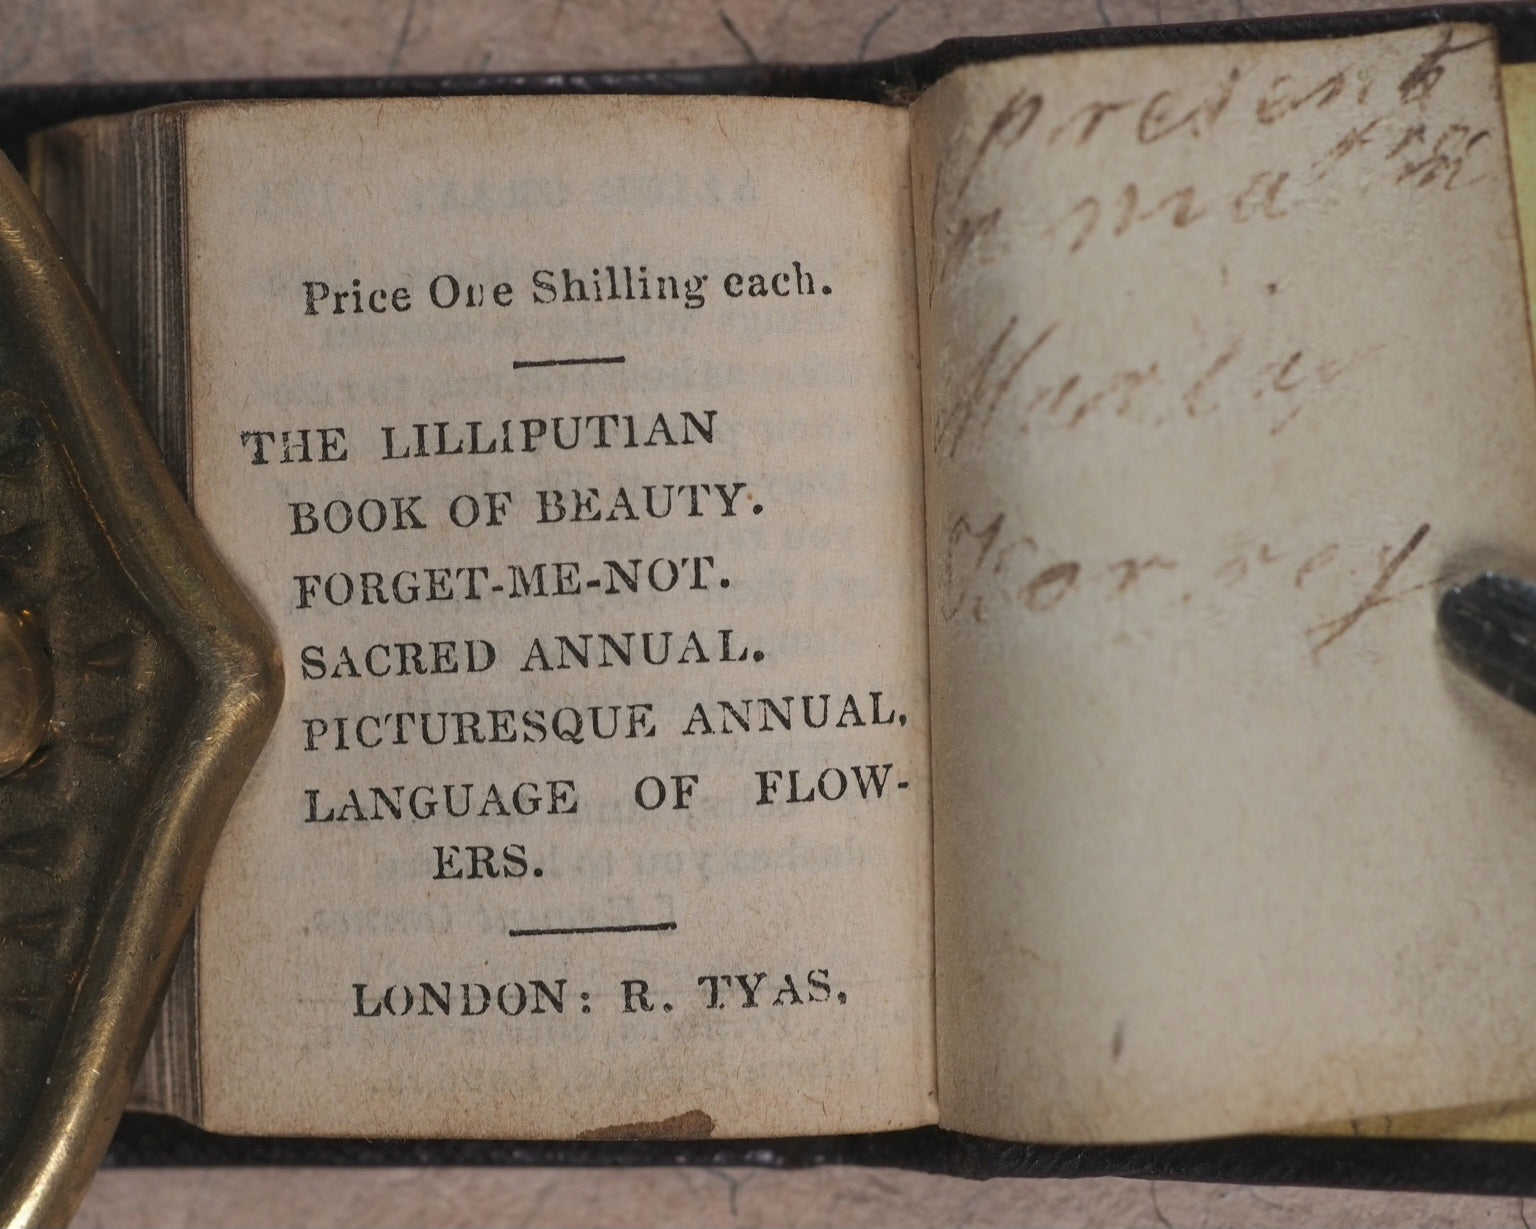 Price One Shilling each.
THE LILLIPUTIAN
BOOK OF BEAUTY.
FORGET-ME-NOT.
SACRED ANNUAL.
PICTURESQUE ANNUAL,
LANGUAGE OF FLOW-
ERS.
LONDON: R. TYAS,
present
from